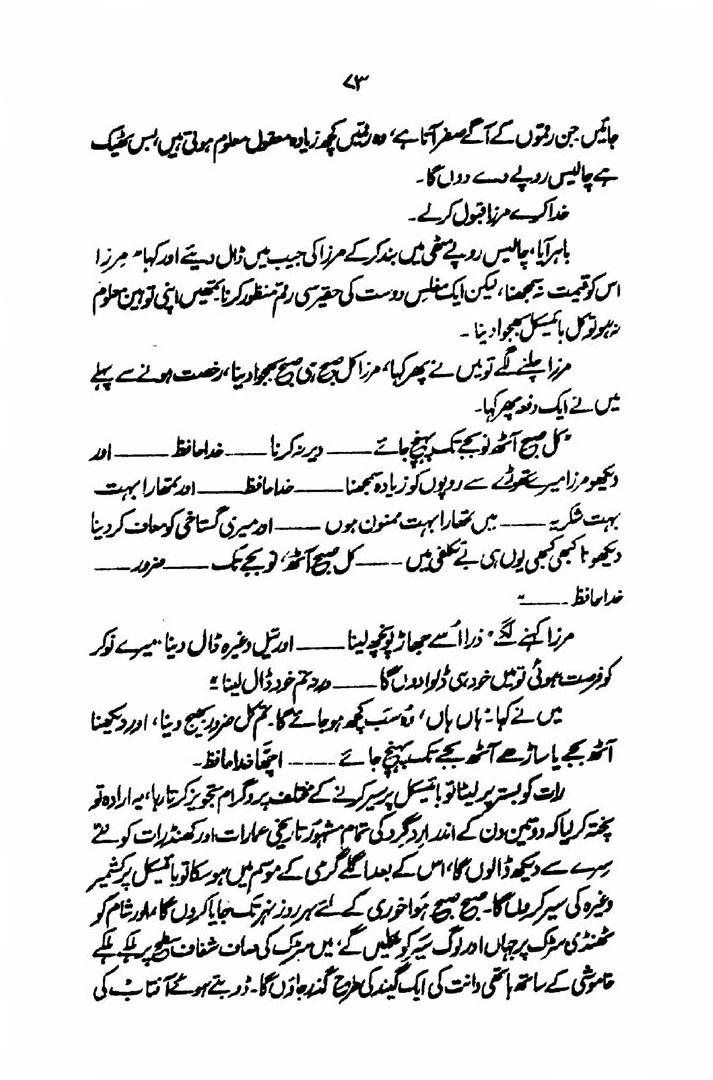 ۷۳
جائیں جن رقموں کے آگے صفر آتا ہے، وہ رقمیں کچھ زیادہ معقول معلوم ہوتی ہیں، بس ٹھیک
ہے چالیس روپے دے دوں گا۔
خدا کرے مرزا قبول کر لے۔
باہر آیا، چالیس روپے مٹھی میں بند کر کے مرزا کی جیب میں ڈال دیئے اور کہا "مرزا
اس کو قیمت نہ سمجھنا، لیکن ایک مفلس دوست کی حقیر سی رقم منظور کرنا تمھیں اپنی توہین معلوم
نہ ہو تو کل بائیسکل بھجوا دینا۔
مرزا چلنے لگے تو میں نے پھر کہا، مرزا کل صبح ہی صبح بھجوا دینا، رخصت ہونے سے پہلے
میں نے ایک دفعہ پھر کہا۔
"کل صبح آٹھ نو بجے تک پہنچ جائے —— دیر نہ کرنا —— خدا حافظ —— اور
دیکھو مرزا میرے تھوڑے سے روپوں کو زیادہ سمجھنا —— خدا حافظ —— اور تمھارا بہت
بہت شکریہ —— میں تمھارا بہت ممنون ہوں —— اور میری گستاخی کو معاف کر دینا
دیکھو نا کبھی کبھی یوں ہی بے تکلفی میں —— کل صبح آٹھ، نو بجے تک —— ضرور ——
خدا حافظ —— "
مرزا کہنے لگے "ذرا اُسے جھاڑ پونچھ لینا —— اور تیل وغیرہ ڈال دینا۔ میرے نوکر
کو فرصت ہوئی تو میں خود ہی ڈلوا دوں گا —— ورنہ تم خود ڈال لینا"
میں نے کہا "ہاں ہاں، وہ سب کچھ ہو جائے گا۔ تم کل ضرور بھیج دینا، اور دیکھنا
آٹھ بجے یا ساڑھے آٹھ بجے تک پہنچ جائے —— اچھا خدا حافظ۔
رات کو بستر پر لیٹا تو بائیسکل پر سیر کرنے کے مختلف پروگرام تجویز کرتا رہا، یہ ارادہ تو
پختہ کر لیا کہ دو تین دن کے اندر اردگرد کی تمام مشہور تاریخی عمارات اور کھنڈرات کو نئے
سرے سے دیکھ ڈالوں گا، اس کے بعد اگلے گرمی کے موسم میں ہو سکا تو بائیسکل پر کشمیر
وغیرہ کی سیر کروں گا۔ صبح صبح ہوا خوری کے لئے ہر روز نہر تک جایا کروں گا، اور شام کو
ٹھنڈی سڑک پر جہاں اور لوگ سیر کو نکلیں گے، میں سڑک کی صاف شفاف سطح پر ہلکے ہلکے
خاموشی کے ساتھ ہاتھی دانت کی ایک گیند کی طرح گذر جاؤں گا۔ ڈوبتے ہوئے آفتاب کی